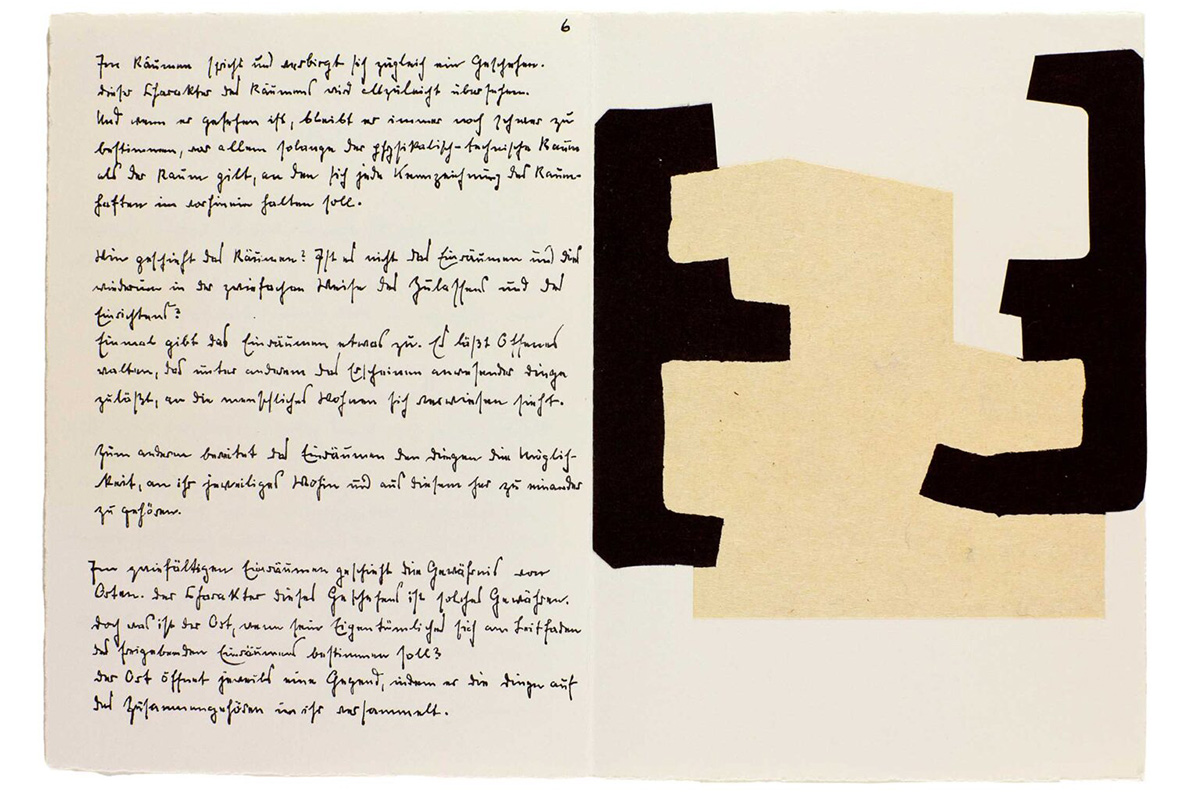 6
Im Räumen spricht und verbirgt sich zugleich ein Geschehen.
dieser Charakter des Räumens wird allzuleicht übersehen.
Und wenn er gesehen ist, bleibt er immer noch schwer zu
bestimmen, vor allem solange der physikalisch-technische Raum
als der Raum gilt, an den sich jede Kennzeichnung des Raum-
haften im vorhinein halten soll.
Wie geschieht das Räumen? Ist es nicht das Einräumen und dies
wiederum in der zwiefachen Weise des Zulassens und des
Einrichtens?
Einmal gibt das Einräumen etwas zu. Es läßt Offenes
walten, das unter anderem das Erscheinen anwesender dinge
zuläßt, an die menschliches Wohnen sich verwiesen sieht.
Zum anderen bereitet das Einräumen den dingen die Möglich-
keit, an ihr jeweiliges Wohin und aus diesem her zu einander
zu gehören.
Im zwiefältigen Einräumen geschieht die Gewährnis von
Orten. der Charakter dieses Geschehens ist solches Gewähren.
doch was ist der Ort, wenn sein Eigentümliches sich am Leitfaden
des freigebenden Einräumens bestimmen soll?
der Ort öffnet jeweils eine Gegend, indem er die dinge auf
das Zusammengehören in ihr versammelt.